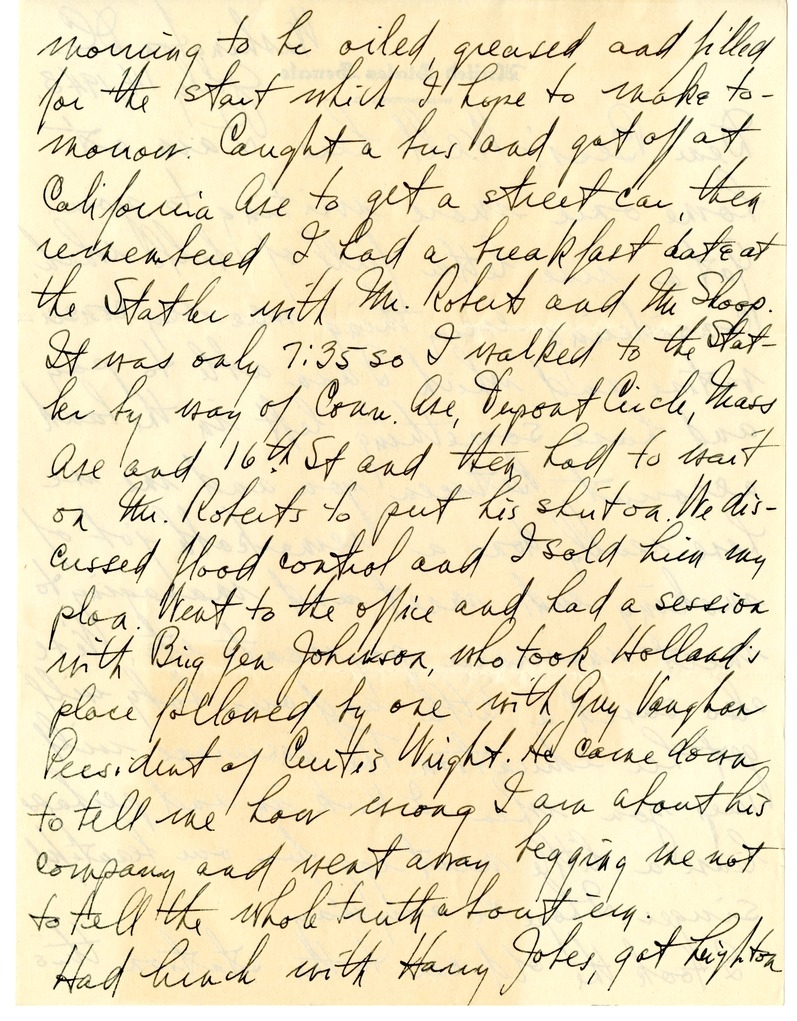 morning to be oiled, greased and filled
for the start which I hope to make to-
morrow. Caught a bus and got off at
California Ave to get a street car, then
remembered I had a breakfast date at
the Statler with Mr. Roberts and Mr Shoop.
It was only 7:35 so I walked to the Stat-
ler by way of Conn. Ave, Dupont Circle, Mass
Ave and 16th St and then had to wait
on Mr. Roberts to put his shirt on. We dis-
cussed flood control and I sold him my
plan. Went to the office and had a session
with Brig Gen Johnson, who took Holland's
place followed by one with Guy Vaughan
President of Curtis Wright. He came down
to tell me how wrong I am about his
company and went away begging me not
to tell the whole truth about 'em.
Had lunch with Harry Jobes, got Leighton